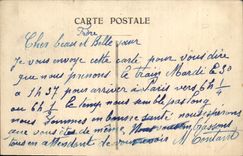 CARTE POSTALE
Frère
Cher beau et Belle sœur
Je vous envoye cette carte pour vous dire
que nous prenons le train Mardi 2 30
a 1 h 37 pour arriver à Paris vers 6h ½
ou 6h ½ Le temp nous semble pas long
nous sommes en bonne santé nous espérons
que vous êtes de même, vous
tous en attendant de vous